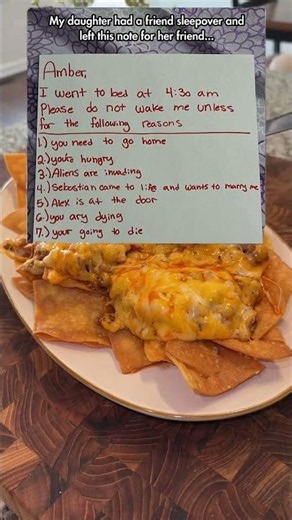 My daughter had a friend sleepover and
left this note for her friend...
Amber,
I went to bed at 4:30 am
Please do not wake me unless
for the following reasons
1.) you need to go home
2.) your hungry
3.) Aliens are invading
4.) Sebastian came to life and wants to marry me
5) Alex is at the door
6.) you ary dying
7.) your going to die